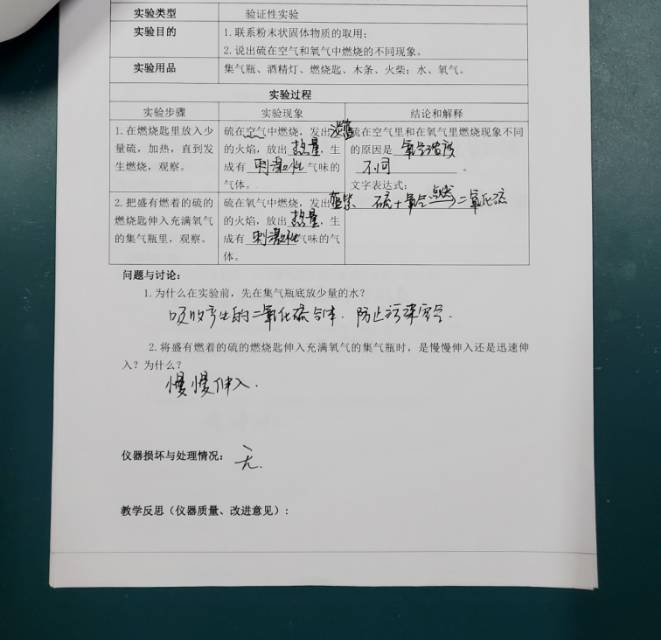 实验类型 验证性实验
实验目的 1.联系粉末状固体物质的取用;
2.说出硫在空气和氧气中燃烧的不同现象。
实验用品 集气瓶、酒精灯、燃烧匙、木条、火柴;水、氧气。
实验过程
实验步骤 实验现象 结论和解释
1.在燃烧匙里放入少量硫，加热，直到发生燃烧，观察。
硫在空气中燃烧，发出淡蓝的火焰，放出热量，生成有刺激性气味的气体。
硫在空气里和在氧气里燃烧现象不同的原因是氧气浓度不同。
文字表达式:
硫+氧气 点燃→ 二氧化硫
2.把盛有燃着的硫的燃烧匙伸入充满氧气的集气瓶里，观察。
硫在氧气中燃烧，发出蓝紫的火焰，放出热量，生成有刺激性气味的气体。
问题与讨论:
1.为什么在实验前，先在集气瓶底放少量的水?
吸收产生的二氧化硫气体．防止污染空气．
2.将盛有燃着的硫的燃烧匙伸入充满氧气的集气瓶时，是慢慢伸入还是迅速伸
入？为什么?
慢慢伸入．
仪器损坏与处理情况: 无．
教学反思（仪器质量、改进意见）: